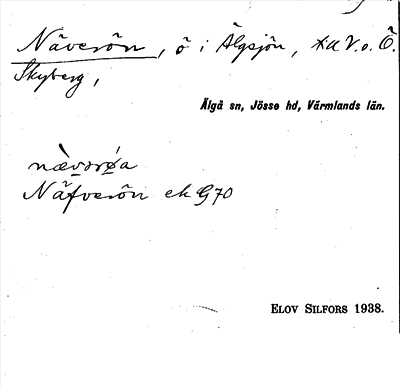 Näverön, ö i Älgsjön, x.a V.o. Ö.
Skyberg,
Älgå sn, Jösse hd, Värmlands län.
nævorøa
Näfverön ek G70
ELOV SILFORS 1938.